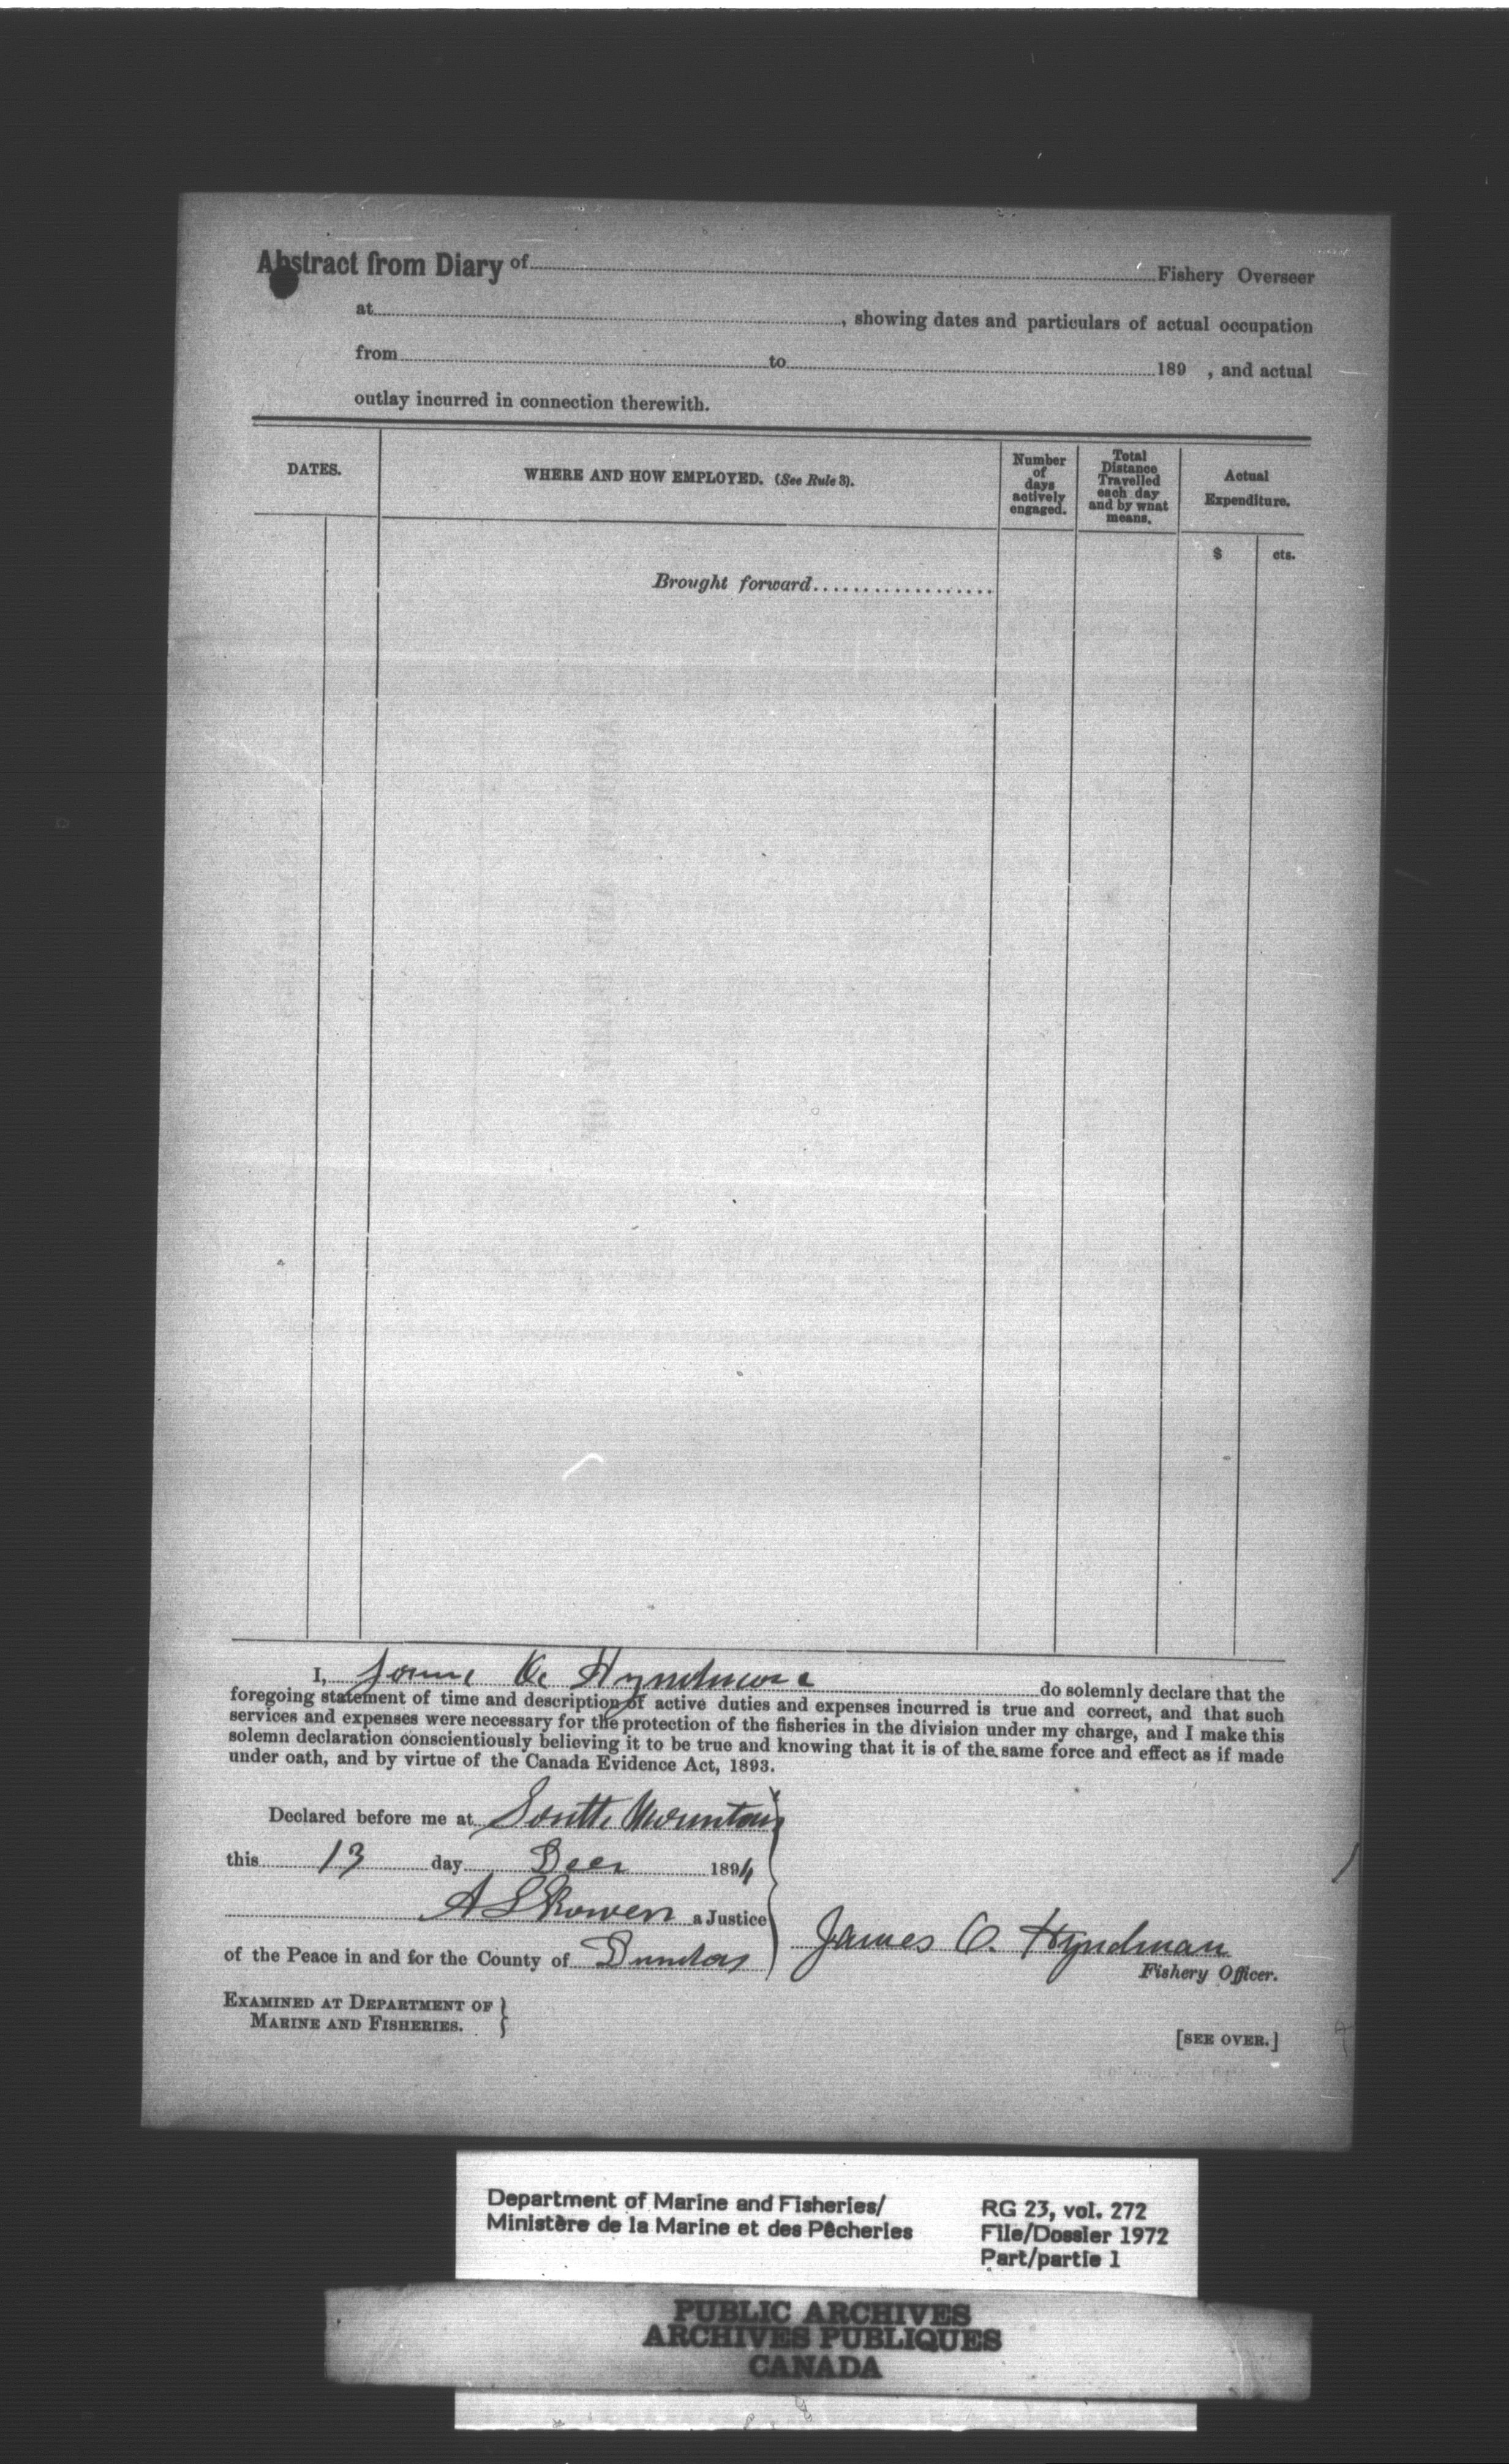 Abstract from Diary of Fishery Overseer
at , showing dates and particulars of actual occupation
from to 189 , and actual
outlay incurred in connection therewith.
DATES. WHERE AND HOW EMPLOYED. (See Rule 3). Number of days actively engaged. Total Distance Travelled each day and by what means. Actual Expenditure.
$ cts.
Brought forward
I, James O. Hyndman do solemnly declare that the
foregoing statement of time and description of active duties and expenses incurred is true and correct, and that such
services and expenses were necessary for the protection of the fisheries in the division under my charge, and I make this
solemn declaration conscientiously believing it to be true and knowing that it is of the same force and effect as if made
under oath, and by virtue of the Canada Evidence Act, 1893.
Declared before me at South Mountain
this 13 day Decr 1894
a Justice
of the Peace in and for the County of Dundas
James O. Hyndman
Fishery Officer.
EXAMINED AT DEPARTMENT OF
MARINE AND FISHERIES.
[SEE OVER.]
Department of Marine and Fisheries/
Ministère de la Marine et des Pêcheries
RG 23, vol. 272
File/Dossier 1972
Part/partie 1
PUBLIC ARCHIVES
ARCHIVES PUBLIQUES
CANADA